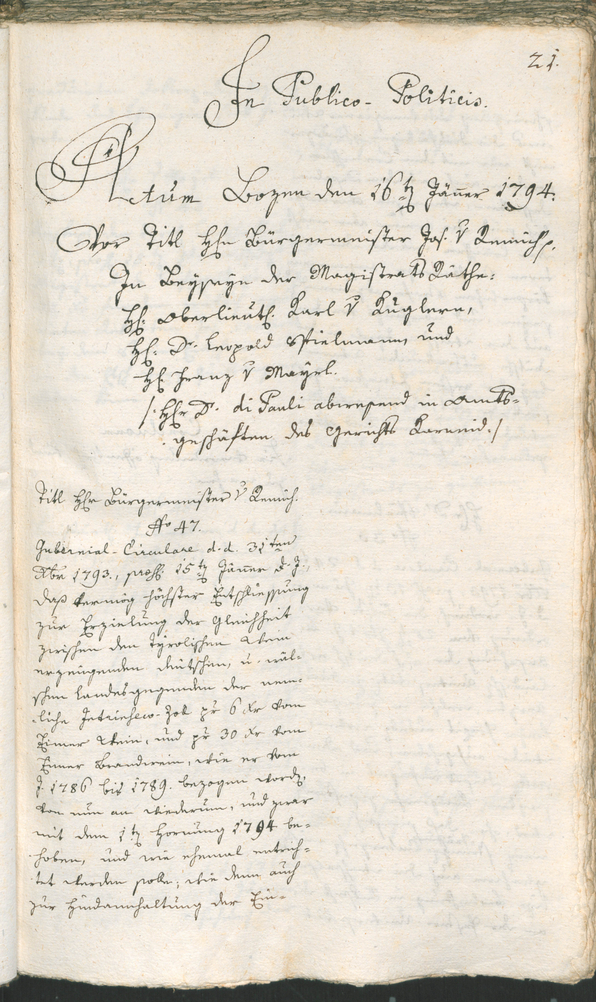 21.
In Publico-Politicis.
Actum Bozen den 16tn Jäner 1794.
Vor Titl Hhn Bürgermeister Jos. v Remich,
In Beyseyn der Magistrats Räthe:
Hh: Oberlieut. Karl v Kuglern,
Hh: Dr. Leopold Spielmann, und
Hh Franz v Mayrl.
/: Hhr Dr. di Pauli abwesend in Amts-
geschäften des Gerichts Karneid. /
Titl Hhr Bürgermeister v Remich.
No 47.
Gubernial-Circulare d. d. 31ten
Xbr 1793., 15tn Jäner d. J.
daß vermög höchster Entschliessung
zur Erzielung der Gleichheit
zwischen den Tyrolischen Wein
erzeugenden deutschen, u. wäl-
schen Landesgegenden der nem-
liche Zoll pr 6 Xr vom
Eimer Wein, und pr 30 Xr vom
Eimer Brandwein, wie er vom
J. 1786 bis 1789. bezogen word,
von nun an wiederum, und zwar
mit dem 1tn Hornung 1794 be-
hoben, und wie ehemal entrich-
tet werden solle; wie denn auch
zur Hindannhaltung der Ein-